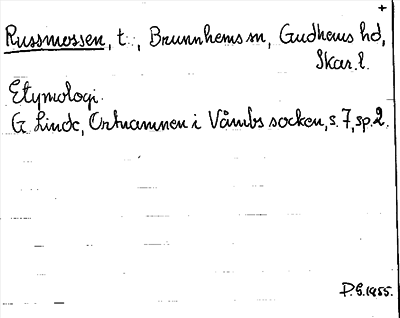 +
Russmossen, t., Brunnhems sn, Gudhems hd,
Skar. l.
Etymologi.
G Linde, Ortnamnen i Våmbs socken, s. 7, sp. 2.
P.G. 1955.